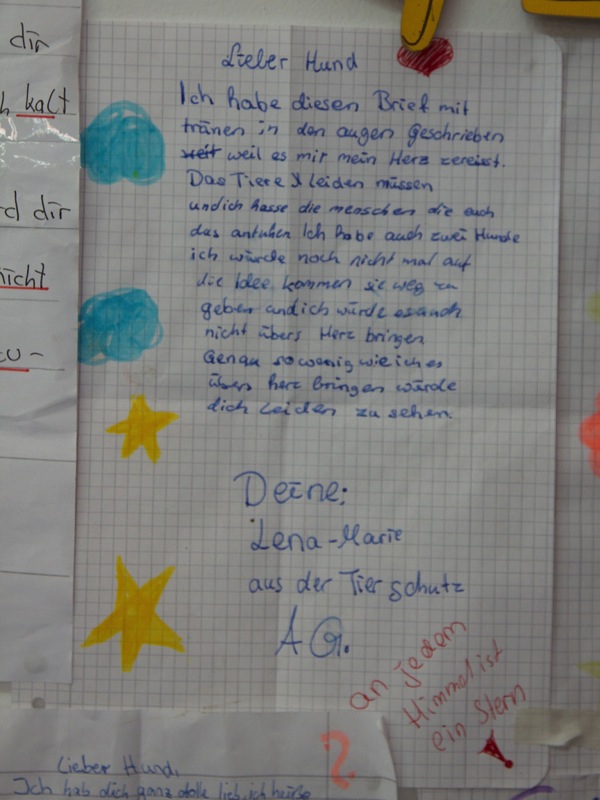 dir
kalt
d dir
nicht
zu -
Lieber Hund
Ich habe diesen Brief mit
tränen in den augen Geschrieben
weil es mir mein Herz zereisst.
Das Tiere leiden müssen
undich hasse die menschen die euch
das antuhen Ich habe auch zwei Hunde
ich würde noch nicht mal auf
die Idee kommen sie weg zu
geben undich würde esauch
nicht übers Herz bringen
Genau sowenig wieich es
übers herz bringen würde
dich Leiden zu sehen.
Deine:
Lena-Marie
aus der Tier schutz
AG.
an jedem
Himmel ist
ein Stern
Lieber Hund,
Ich hab dich ganz dolle lieb, ich heiße